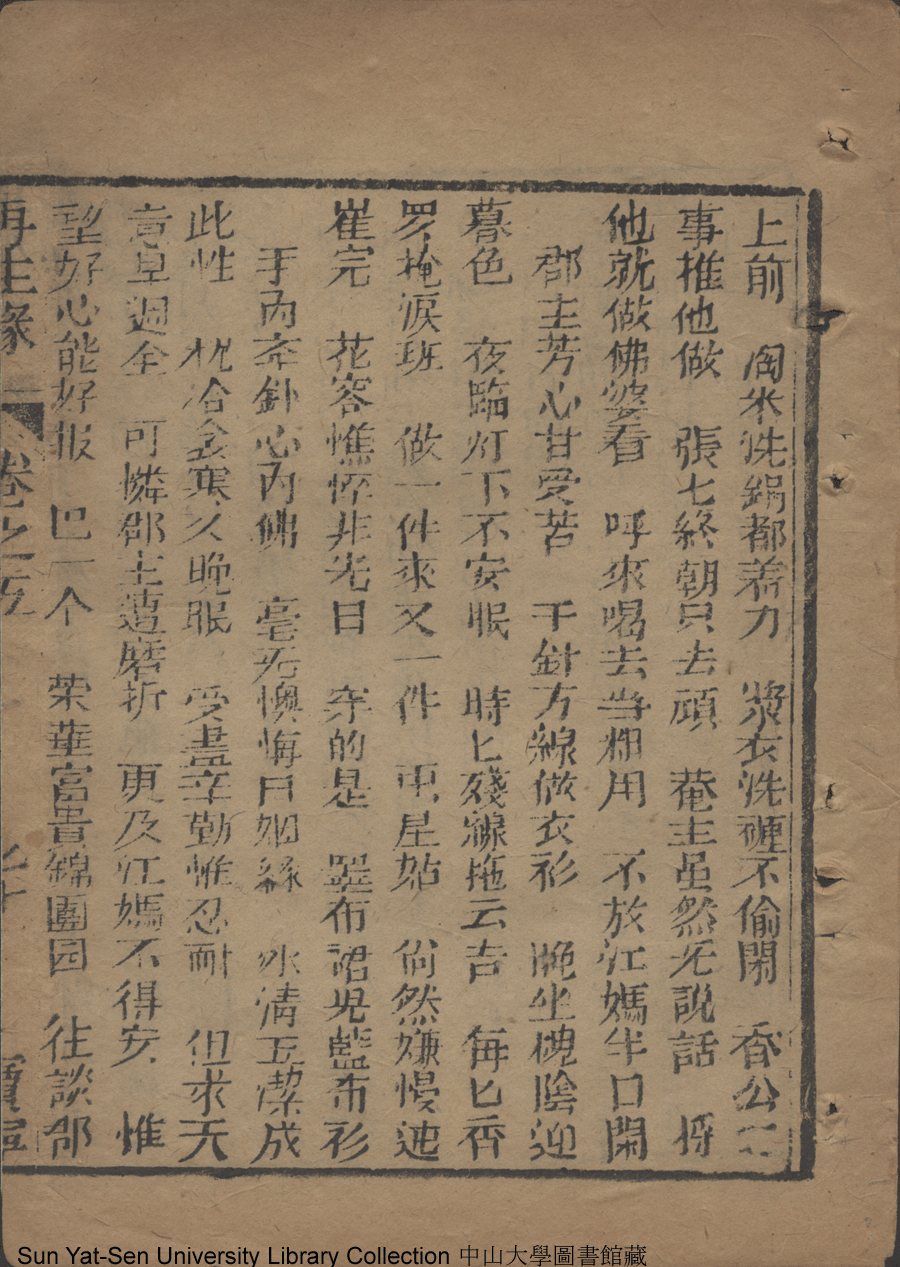 上前　淘米洗鍋都着力　漿衣洗裡不偷閑　香公二
事推他做　張七終朝只去頑　菴主虽然无說話　将
他就做佛婆看　呼來喝去当粗用　不放江媽半口閑
郡主芳心甘受苦　千針万線做衣衫　晩坐槐陰迎
暮色　夜臨灯下不安眠　時匕殘線拖云吉　每匕香
罗掩淚班　做一件來又一件　屯星姑　尚然嫌慢連
崔完　花容憔悴非光日　穿的是　罣布裙児藍布衫
手內牵針心內佛　毫无懊悔日姻緣　氷清玉潔成
此性　枕冷衾寒久晩眠　受盡辛勤惟忍耐　但求天
意早週全　可憐郡主遭磨折　更及江媽不得安　惟
望好心能好报　巴一个　荣華富貴錦團园　往談郡
再生緣　卷之五　寶寧
Sun Yat-Sen University Library Collection 中山大學圖書館藏